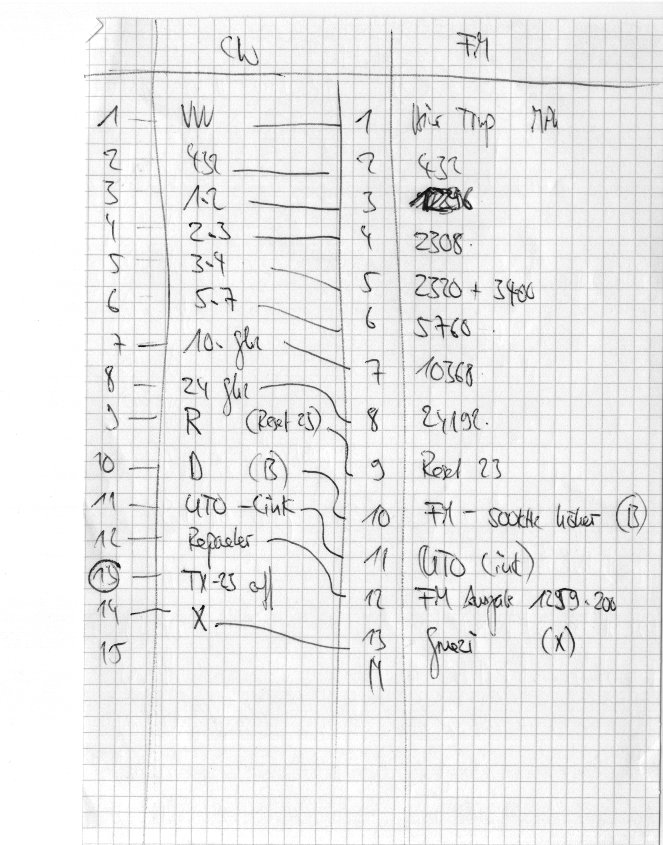 CW FM
1 VVV 1 Hier Temp
2 432 2 432
3 1.2 3
4 2.3 4 2308.
5 3.4 5 2320 + 3400
6 5.7 6 5760.
7 10. ghz 7 10368
8 24 ghz 8 24192.
9 R (Reset 23) 9 Reset 23
10 D (B) 10 FM - 500 Hz höher (B)
11 UTO - Link 11 (UTO Link)
12 Repaeter 12 FM Ausgabe 1259.200
13 TX-23 off 13 gruezi (X)
14 X
15